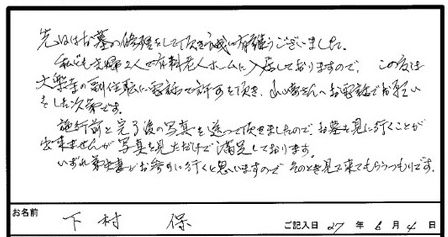 先日はお墓の修理をして頂き誠に有難うございました。
私ども夫婦2人で有料老人ホームに入居しておりますので、この度は
大楽寺の副住職に電話で許可を頂き、山崎さんへお電話でお願い
をした次第です。
施行前と完了後の写真を送って頂きましたので、お墓を見に行くことが
出来ませんが写真を見ただけで満足しております。
いずれ弟夫妻がお参りに行くと思いますのでそのとき見て来てもらうつもりです。
お名前 下村 保 ご記入日 27年 6月 4日